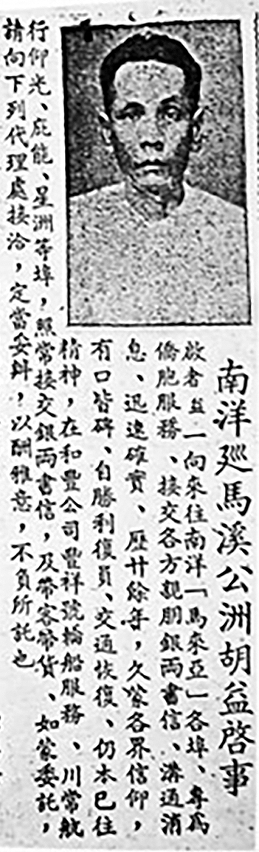 南洋廵馬溪公洲胡益啓事
啟者益一向來往南洋「馬來亞」各埠、專爲
僑胞服務、接交各方親朋銀両書信、溝通消
息、迅速確實、歷廿餘年，久蒙各界信仰，
有口皆碑、自勝利復員、交通恢復、仍本已往
精神，在和豐公司豐祥號輪船服務、川常航
行仰光、庇能、星洲等埠，照常接交銀両書信，及帶客帶貨、如蒙委託，
請向下列代理處接洽，定當妥辦，以酬雅意，不負所託也